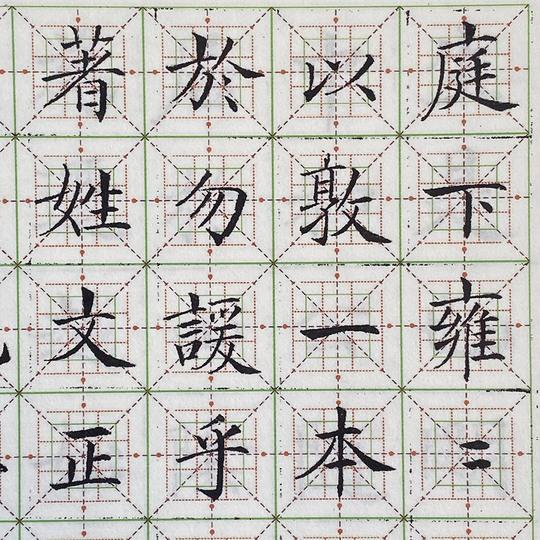 庭下雍〻
以敦一本
於勿諼乎
著姓文正